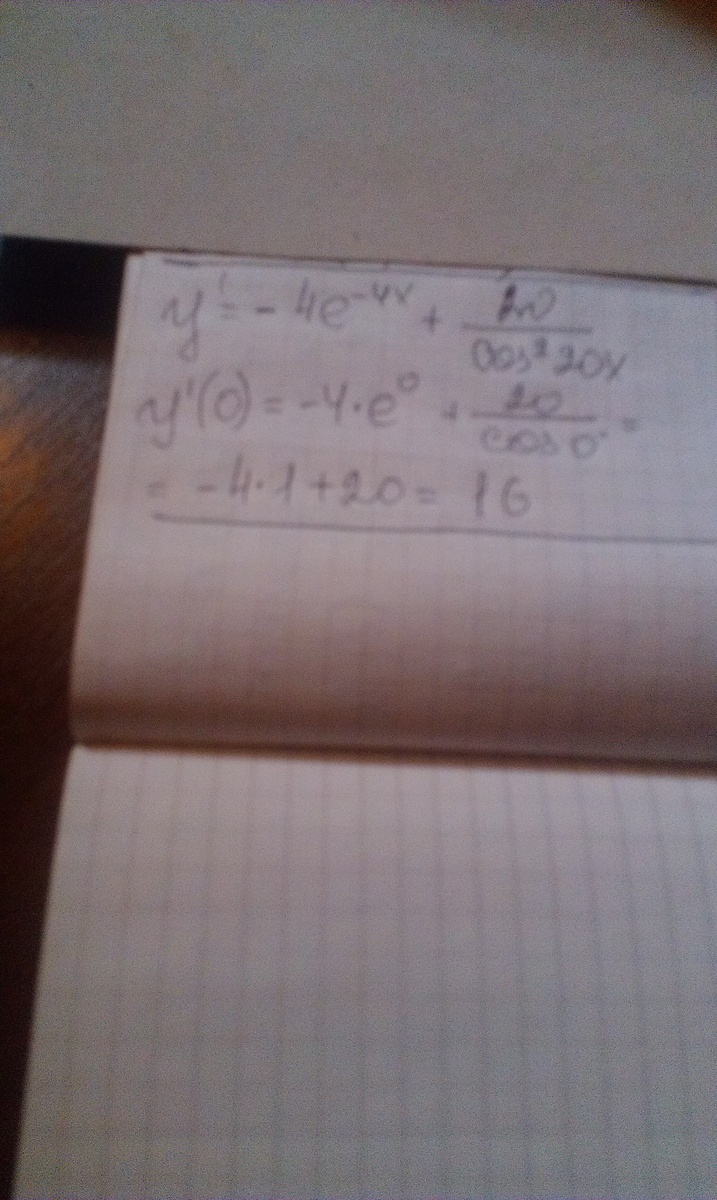 y' = -4e^{-4x} + \frac{20}{cos^2 20x}
y'(0) = -4·e^0 + \frac{20}{cos 0} =
= -4·1+20= 16